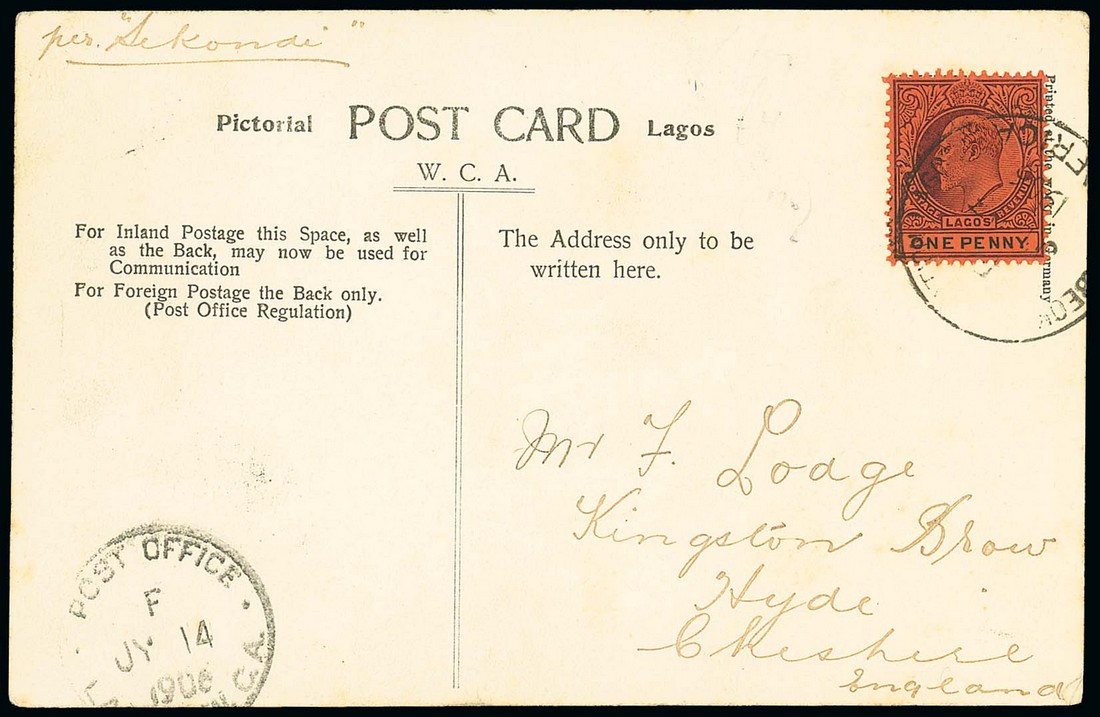 per. "Sekondi"
Pictorial POST CARD Lagos
W. C. A.
For Inland Postage this Space, as well
as the Back, may now be used for
Communication
For Foreign Postage the Back only.
(Post Office Regulation)
The Address only to be
written here.
LAGOS
ONE PENNY
Printed at the in Germany
Mr F. Lodge
Kingston Brow
Hyde
Cheshire
England
POST OFFICE
F
JY 14
1906